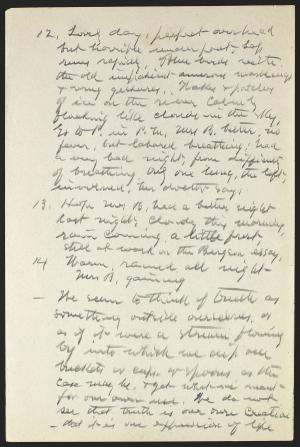 12. Lovely day, perfect overhead
but horrible under foot. Sap
runs rapidly. Blue birds with
the old impatient amorous warblings
& wing gestures. Flakes & patches
of ice on the river calmly
floating like clouds in the sky.
Go to P. in P.M. Mrs B. better, no
fever, but labored breathing; had
a very bad night, from difficulty
of breathing. Only one lung, the left,
involved, her doctor says.
13. Hope Mrs B. had a better night
last night; cloudy this morning,
rain coming, a little frost,
still at work on the Bergson essay.
14 Warm, rained all night—
Mrs B. gaining
— We seem to think of truth as
something outside ourselves, as
if it were a stream flowing
by into which we dip our
buckets or cups or spoons as the
case may be, & get what we want
for our own use. We do not
see that truth is our own creation
— that it is our expression of life